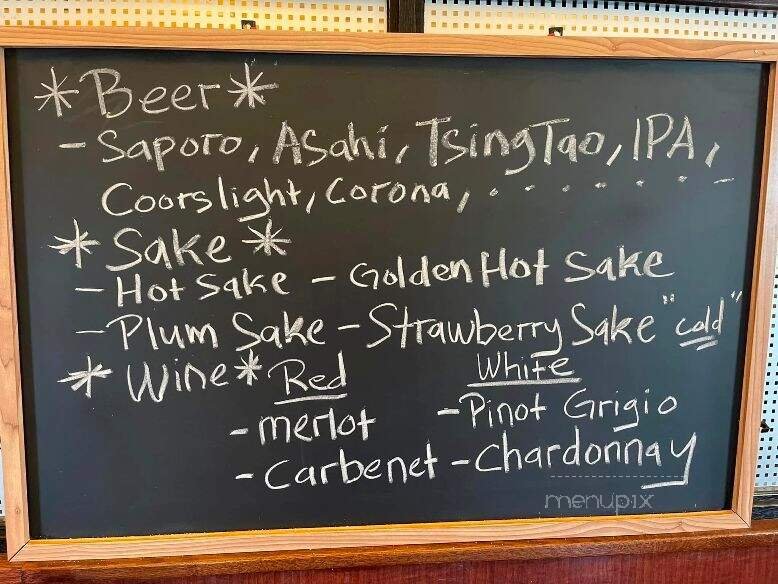 *Beer*
- Saporo, Asahi, TsingTao, IPA,
Coors light, Corona, . . . . . . -
* Sake *
- Hot Sake - Golden Hot Sake
- Plum Sake - Strawberry Sake "cold"
* Wine* Red White
- merlot - Pinot Grigio
- Carbenet - Chardonnay
menupix